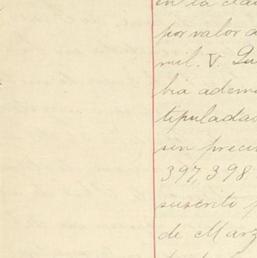 en la cla
por valor d
mil. V. Qu
bia adem
tipulada
sin preci
397,398
suscrito p
de Marz